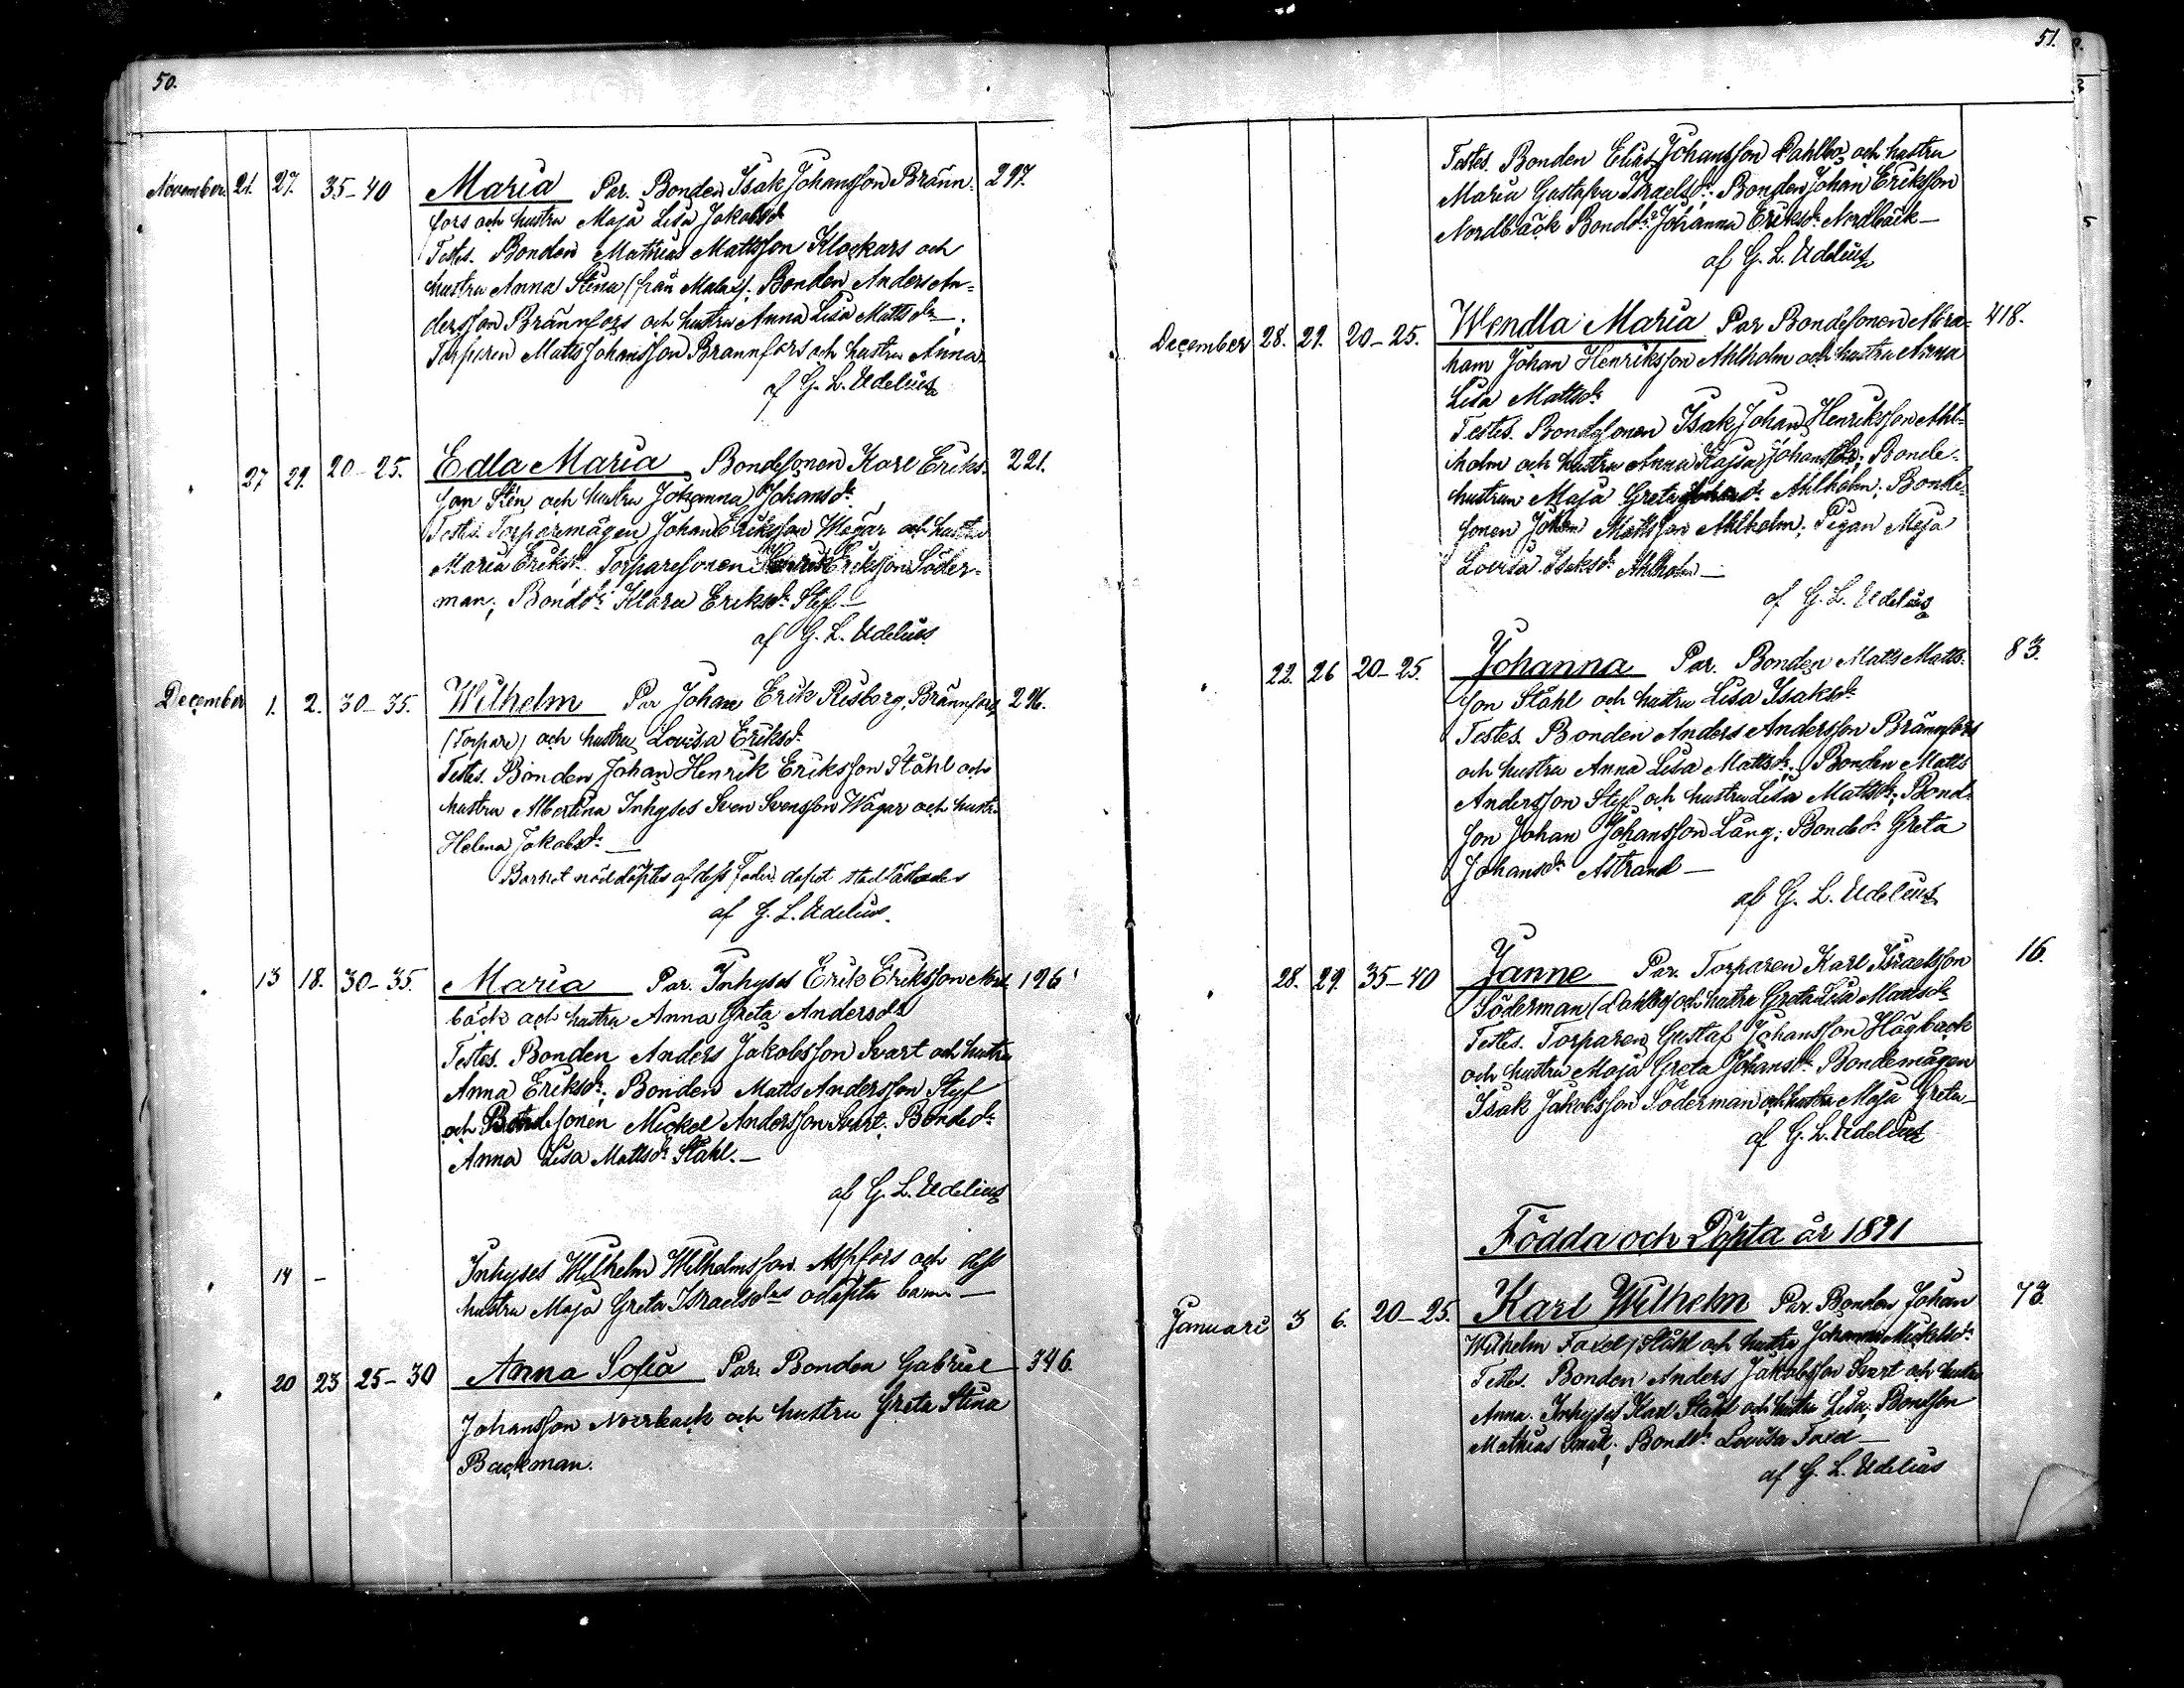 50.
November. 21. 27. 35-40 Maria Par. Bonden Isak Johansson Bränn- 297.
fors och hustru Maja Lisa Jakobsdr
Testes. Bonden Mathias Mattsson Klockars och
hustru Anna Stina (från Malax); Bonden Anders An-
dersson Brännfors och hustru Anna Lisa Mattsdr;
Torparen Matts Johansson Brännfors och hustru Anna
af G. L. Udelius
27 29. 20-25. Edla Maria Bondesonen Karl Eriks- 221.
son Stén och hustru Johanna Johansdr
Testes. Torparemågen Johan Eriksson Wägar och hustru
Maria Eriksdr. Torparesonen Eriksson Söder-
man; Bonddr Klara Eriksdr Styf
af G. L. Udelius
December 1. 2. 30-35. Wilhelm Par Johan Erik Risberg, Brännfors 296.
(Torpare) och hustru Lovisa Eriksdr
Testes. Bonden Johan Henrik Eriksson Ståhl och
hustru Albertina Inhyses Sven Svensson Wägar och hustru
Helena Jakobsdr
Barnet nöddöptes af dess fader, dopet stadfästades
af G. L. Udelius.
13 18. 30-35. Maria Par. Inhyses Erik Eriksson Nord- 196
bäck och hustru Anna Greta Andersdr
Testes. Bonden Anders Jakobsson Svart och hustru
Anna Eriksdr; Bonden Matts Andersson Styf
och Bondesonen Mickel Andersson Svart. Bondedr
Anna Lisa Mattsdr Ståhl.
af G. L. Udelius
14 - Inhyses Wilhelm Wilhelmsson Appfors och dess
hustru Maja Greta Israelsdrs odöpta barn
20 23 25-30 Anna Sofia Par. Bonden Gabriel 346.
Johansson Norrback och hustru Greta Stina
Backman.
51.
Testes. Bonden Elias Johansson Dahlbo och hustru
Maria Gustafva Israelsdr; Bonden Johan Eriksson
Nordbäck Bonddr Johanna Eriksdr Nordbäck
af G. L. Udelius
December 28. 29. 20-25. Wendla Maria Par Bondesonen Abra- 418.
ham Johan Henriksson Ahlholm och hustru Anna
Lisa Mattsdr
Testes. Bondesonen Isak Johan Henriksson Ahl-
holm och hustru Anna Kajsa Johansdr; Bonde-
hustrun Maja Greta Ahlholm; Bonde-
sonen Johan Mattsson Ahlholm; Pigan Maja
Lovisa Isaksdr Ahlholm
af G. L. Udelius
22. 26 20-25. Johanna Par. Bonden Matts Matts- 83.
son Ståhl och hustru Lisa Isaksdr
Testes. Bonden Anders Andersson Brännfors
och hustru Anna Lisa Mattsdr; Bonden Matts
Andersson Styf och hustru Lisa Mattsdr; Bond-
son Johan Johansson Lång; Bondedr Greta
Johansdr Åstrand
af G. L. Udelius
28. 29. 35-40 Janne Par. Torparen Karl Israelsson 16.
Söderman (Dahlbo) och hustru Greta Lisa Mattsdr
Testes. Torparen Gustaf Johansson Högback
och hustru Maja Greta Johansdr Bondemågen
Isak Jakobsson Söderman och hustru Maja Greta
af G. L. Udelius
Födda och Döpta år 1891
Januari 3 6. 20-25. Karl Wilhelm Par. Bonden Johan 73.
Wilhelm Ståhl och hustru Johanna Mickelsdr
Testes. Bonden Anders Jakobsson Svart och hustru
Anna. Inhyses Karl Ståhl och hustru Lisa; Bondson
Mathias; Bonddr Lovisa
af G. L. Udelius